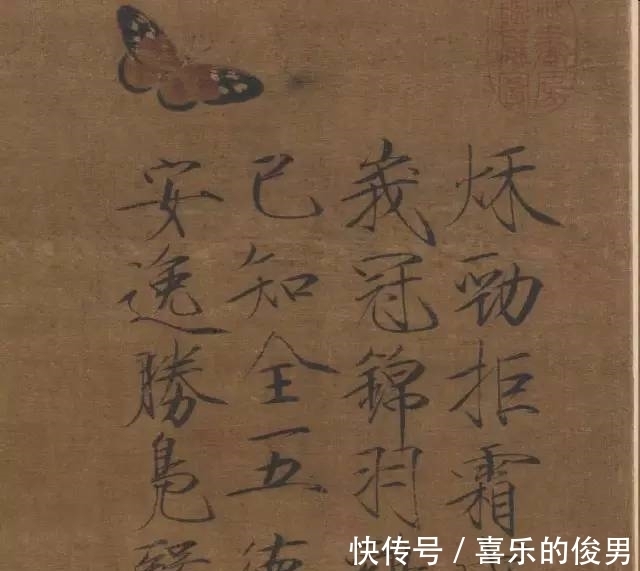 秌勁拒霜
峩冠錦羽
已知全五德
安逸勝鳧
快传号 / 喜乐的俊男